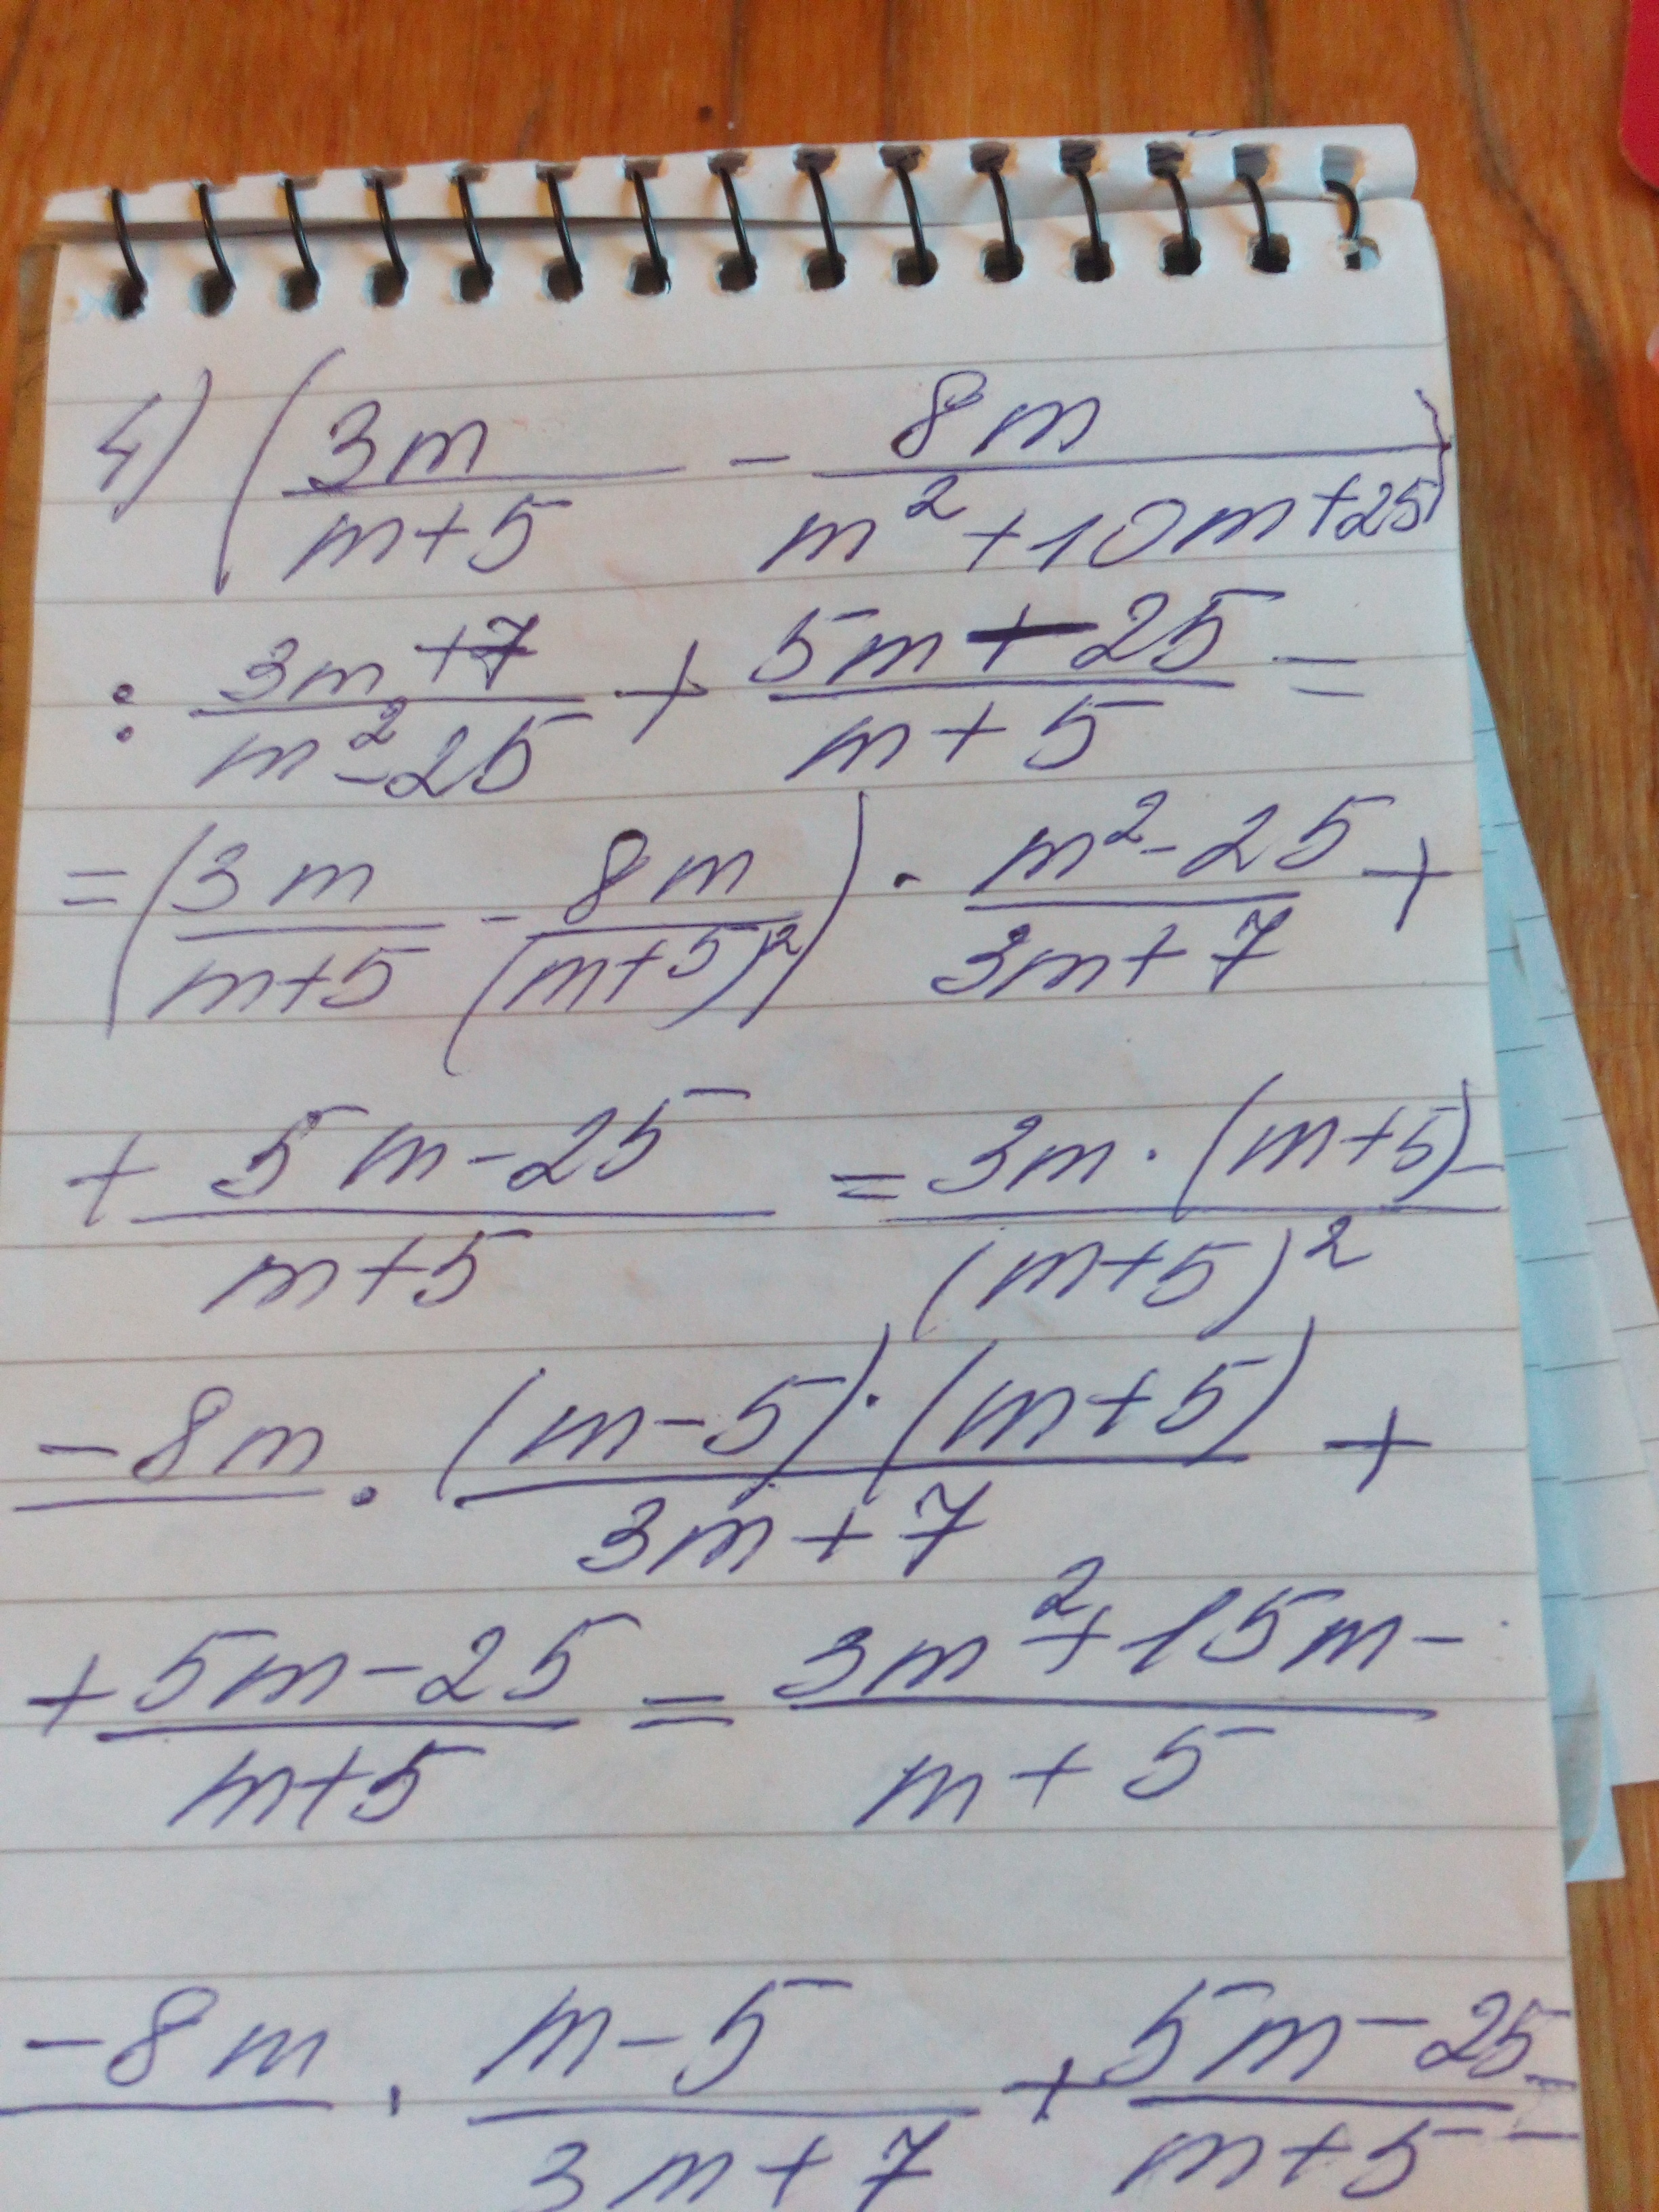 4) (3m/(m+5) - 8m/(m²+10m+25))
: (3m+7)/(m²-25) + (5m-25)/(m+5) =
= (3m/(m+5) - 8m/(m+5)²) · (m²-25)/(3m+7) +
+ (5m-25)/(m+5) = (3m·(m+5)-)/(m+5)²
-8m · ((m-5)·(m+5))/(3m+7) +
+ (5m-25)/(m+5) = (3m²+15m-)/(m+5)
-8m · (m-5)/(3m+7) + (5m-25)/(m+5) =